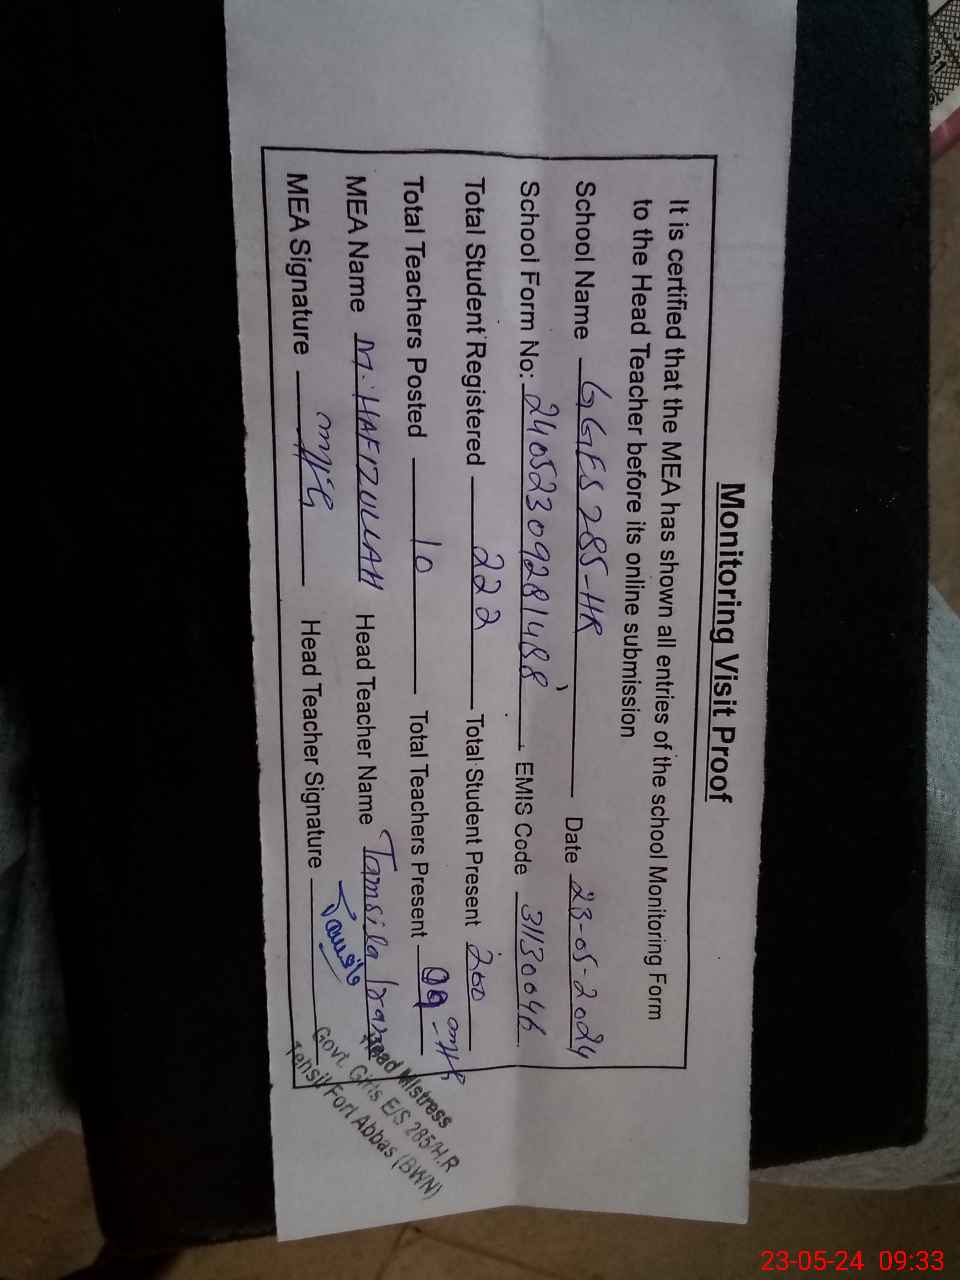 Monitoring Visit Proof
It is certified that the MEA has shown all entries of the school Monitoring Form
to the Head Teacher before its online submission
School Name GGES 285-HR Date 23-05-2024
School Form No: 24052309281488 EMIS Code 31130046
Total Student Registered 222 Total Student Present 200
Total Teachers Posted 10 Total Teachers Present 09
MEA Name M. HAFIZULLAH Head Teacher Name Tamsila Iram
MEA Signature Head Teacher Signature Tamsila
Head Mistress
Govt. Girls E/S 285/H.R
Tehsil Fort Abbas (BWN)
31
23-05-24 09:33